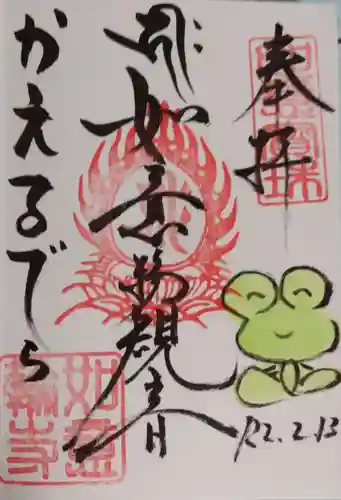 奉拝
如意輪観音
かえるでら
R2.2.13
如意
輪寺